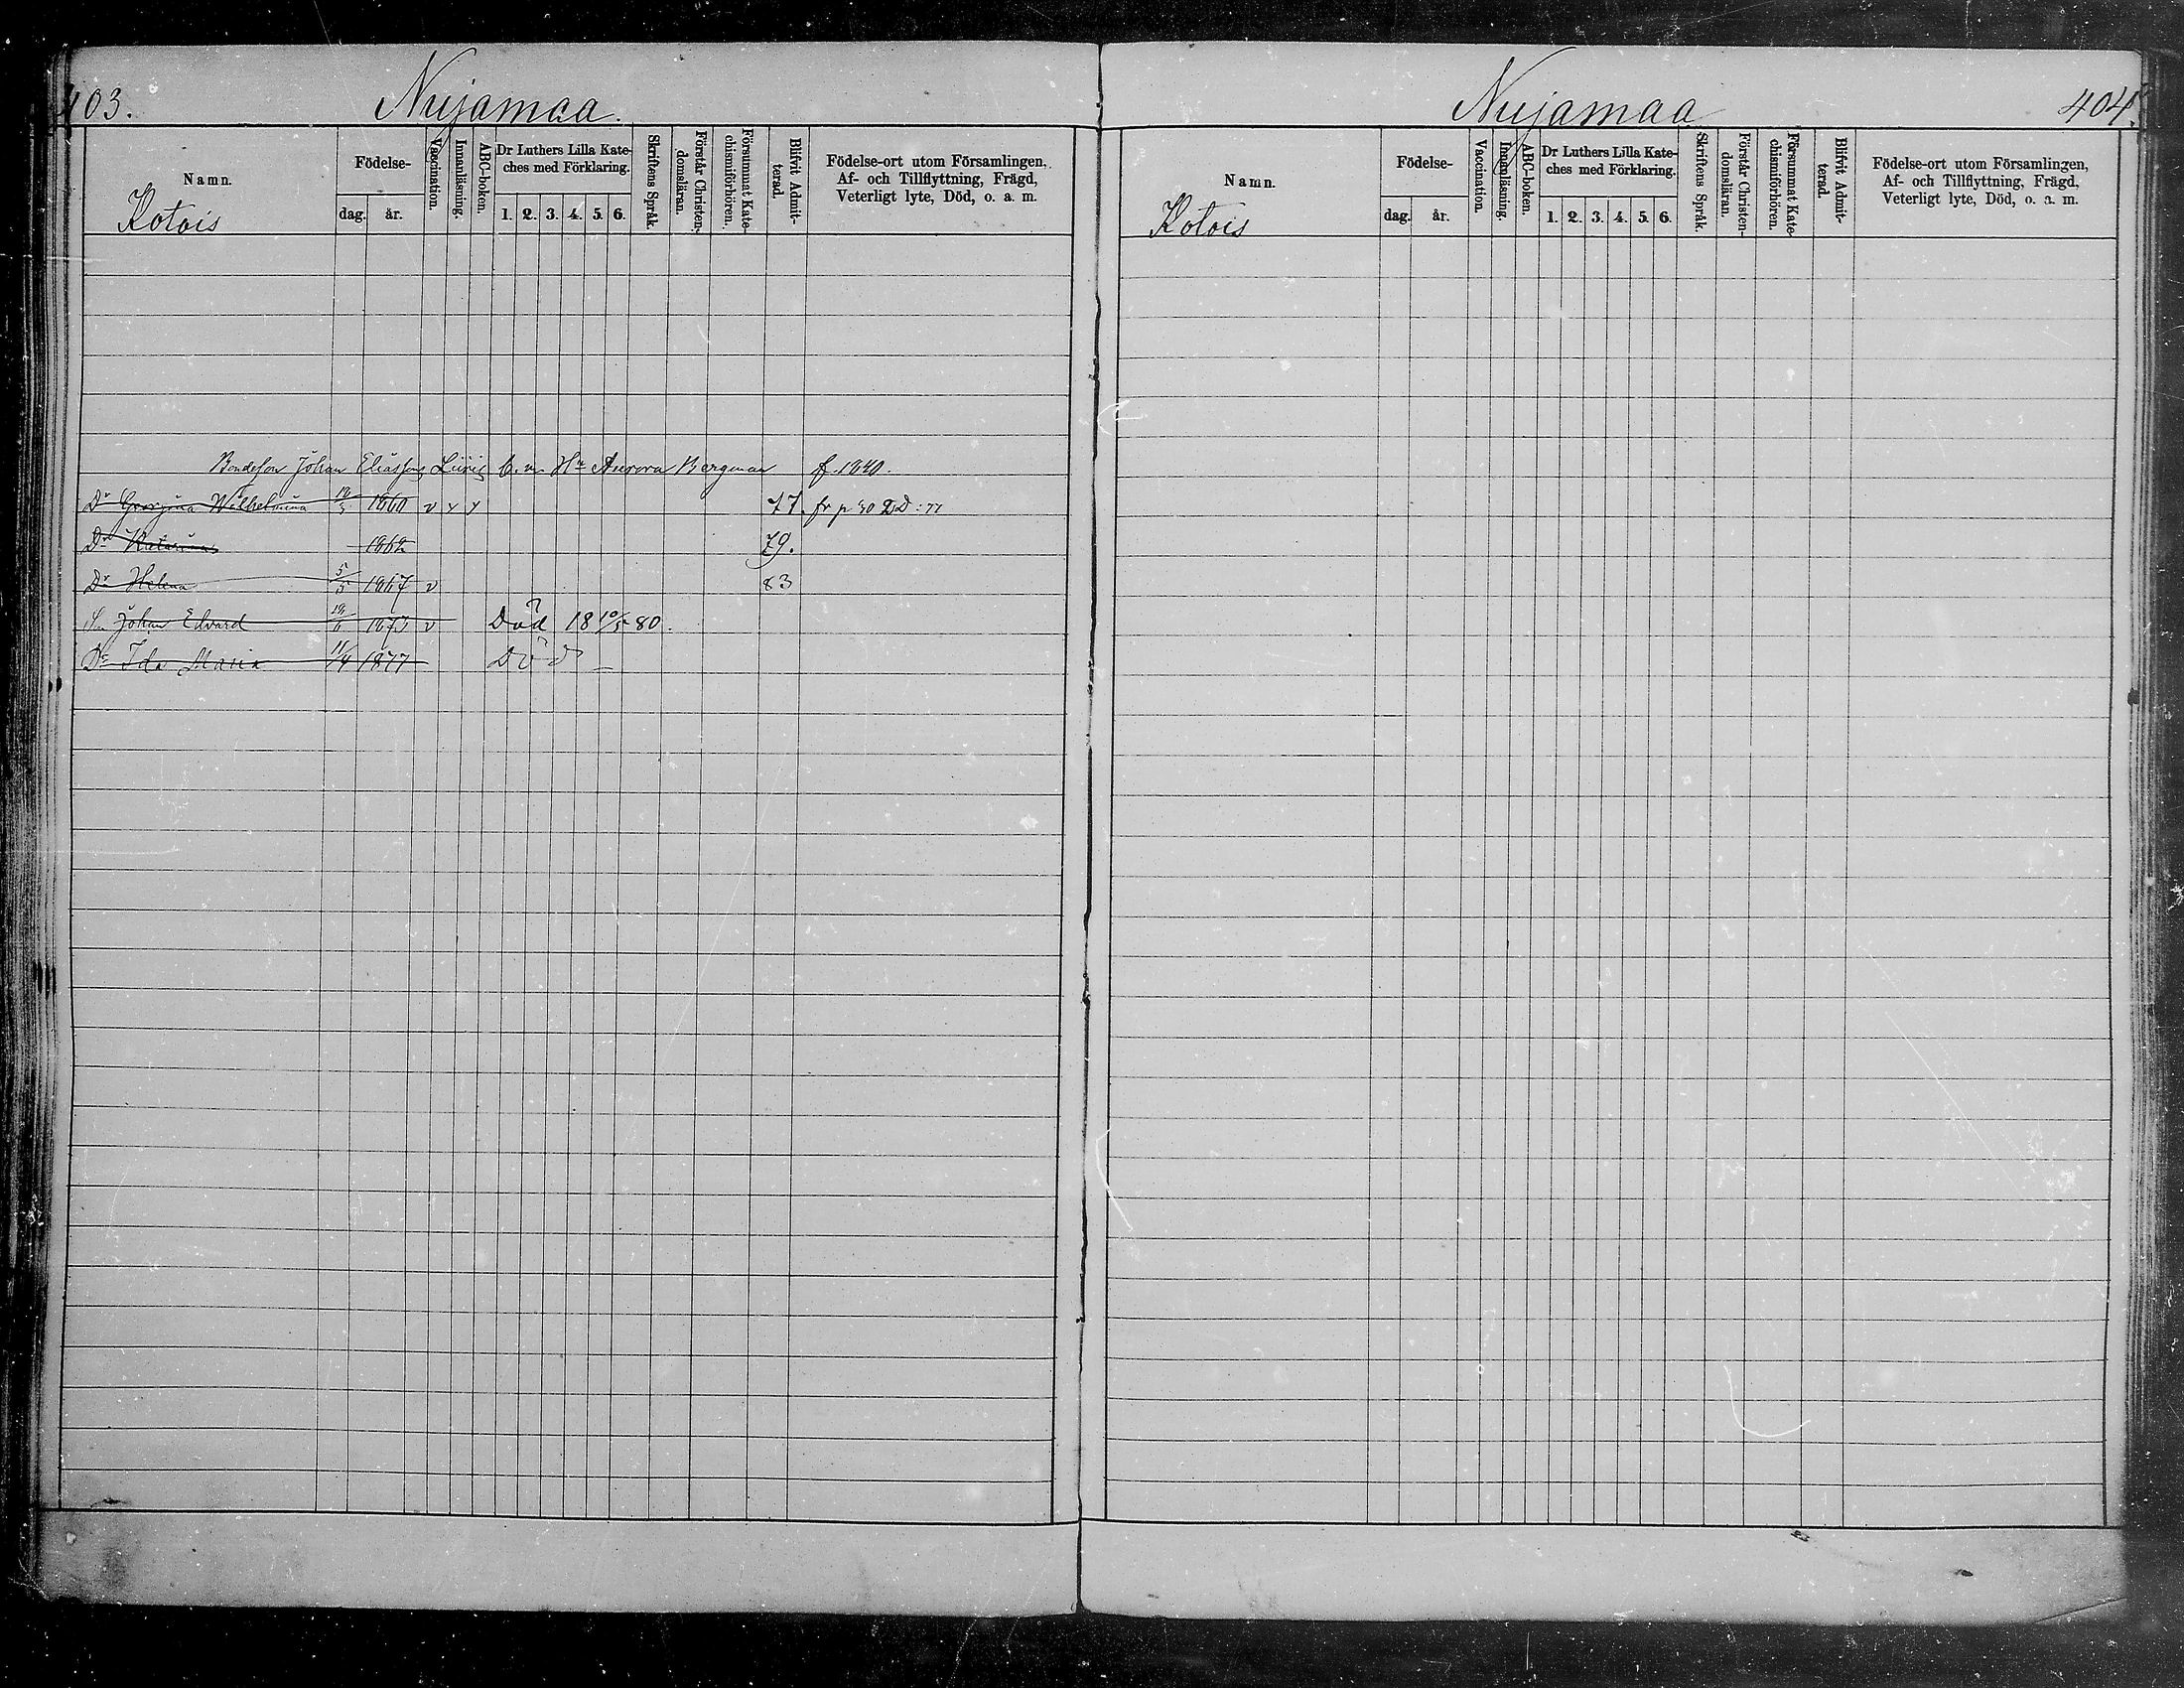 403.
Nujamaa.
Namn.
Kotois
Födelse-
dag. år.
Vaccination.
Innanläsning.
ABC-boken.
Dr Luthers Lilla Kate-
ches med Förklaring.
1. 2. 3. 4. 5. 6.
Skriftens Språk.
Förstår Christen-
domsläran.
Försummat Kate-
chismiförhören.
Blifvit Admit-
terad.
Födelse-ort utom Församlingen,
Af- och Tillflyttning, Frägd,
Veterligt lyte, Död, o. a. m.
Bondeson Johan Eliasson o. m. Hu Aurora Bergman f. 1840.
Dr Georgina Wilhelmina 1860 v 77. fr p 30 :77
Dr Katarina 1862 79.
Dr Helena 5/5 1867 v 83
Sn Johan Edvard 1873 v Död 18 10/5 80.
Dr Ida Maria 11/4 1877 Död
Nujamaa
404.
Namn.
Kotois
Födelse-
dag. år.
Vaccination.
Innanläsning.
ABC-boken.
Dr Luthers Lilla Kate-
ches med Förklaring.
1. 2. 3. 4. 5. 6.
Skriftens Språk.
Förstår Christen-
domsläran.
Försummat Kate-
chismiförhören.
Blifvit Admit-
terad.
Födelse-ort utom Församlingen,
Af- och Tillflyttning, Frägd,
Veterligt lyte, Död, o. a. m.